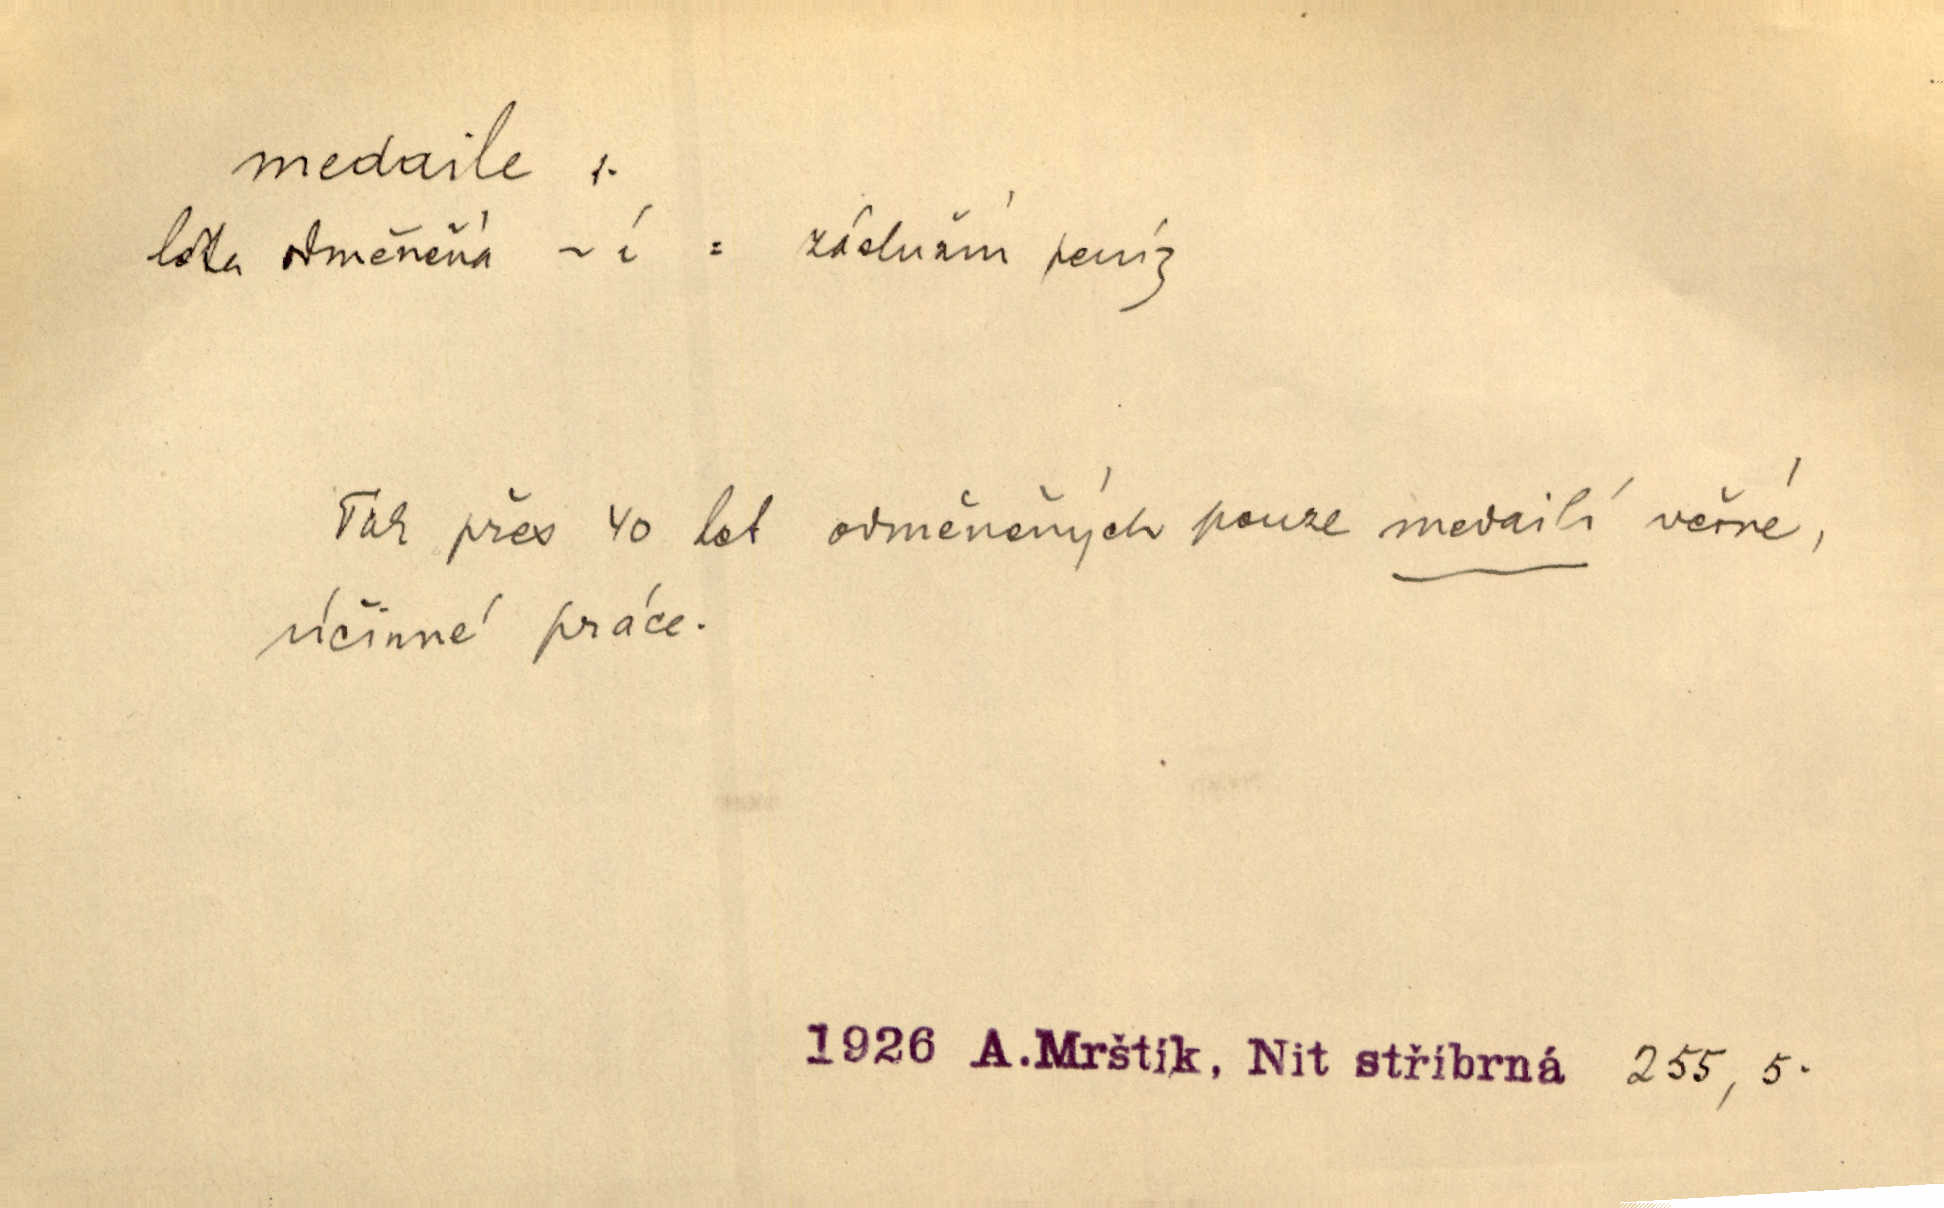 medaile ž.
léta odměněná ~í = záslužní peníz
Tak přes 40 let odměněných pouze medailí věrné,
účinné práce.
1926 A.Mrštík, Nit stříbrná 255, 5.